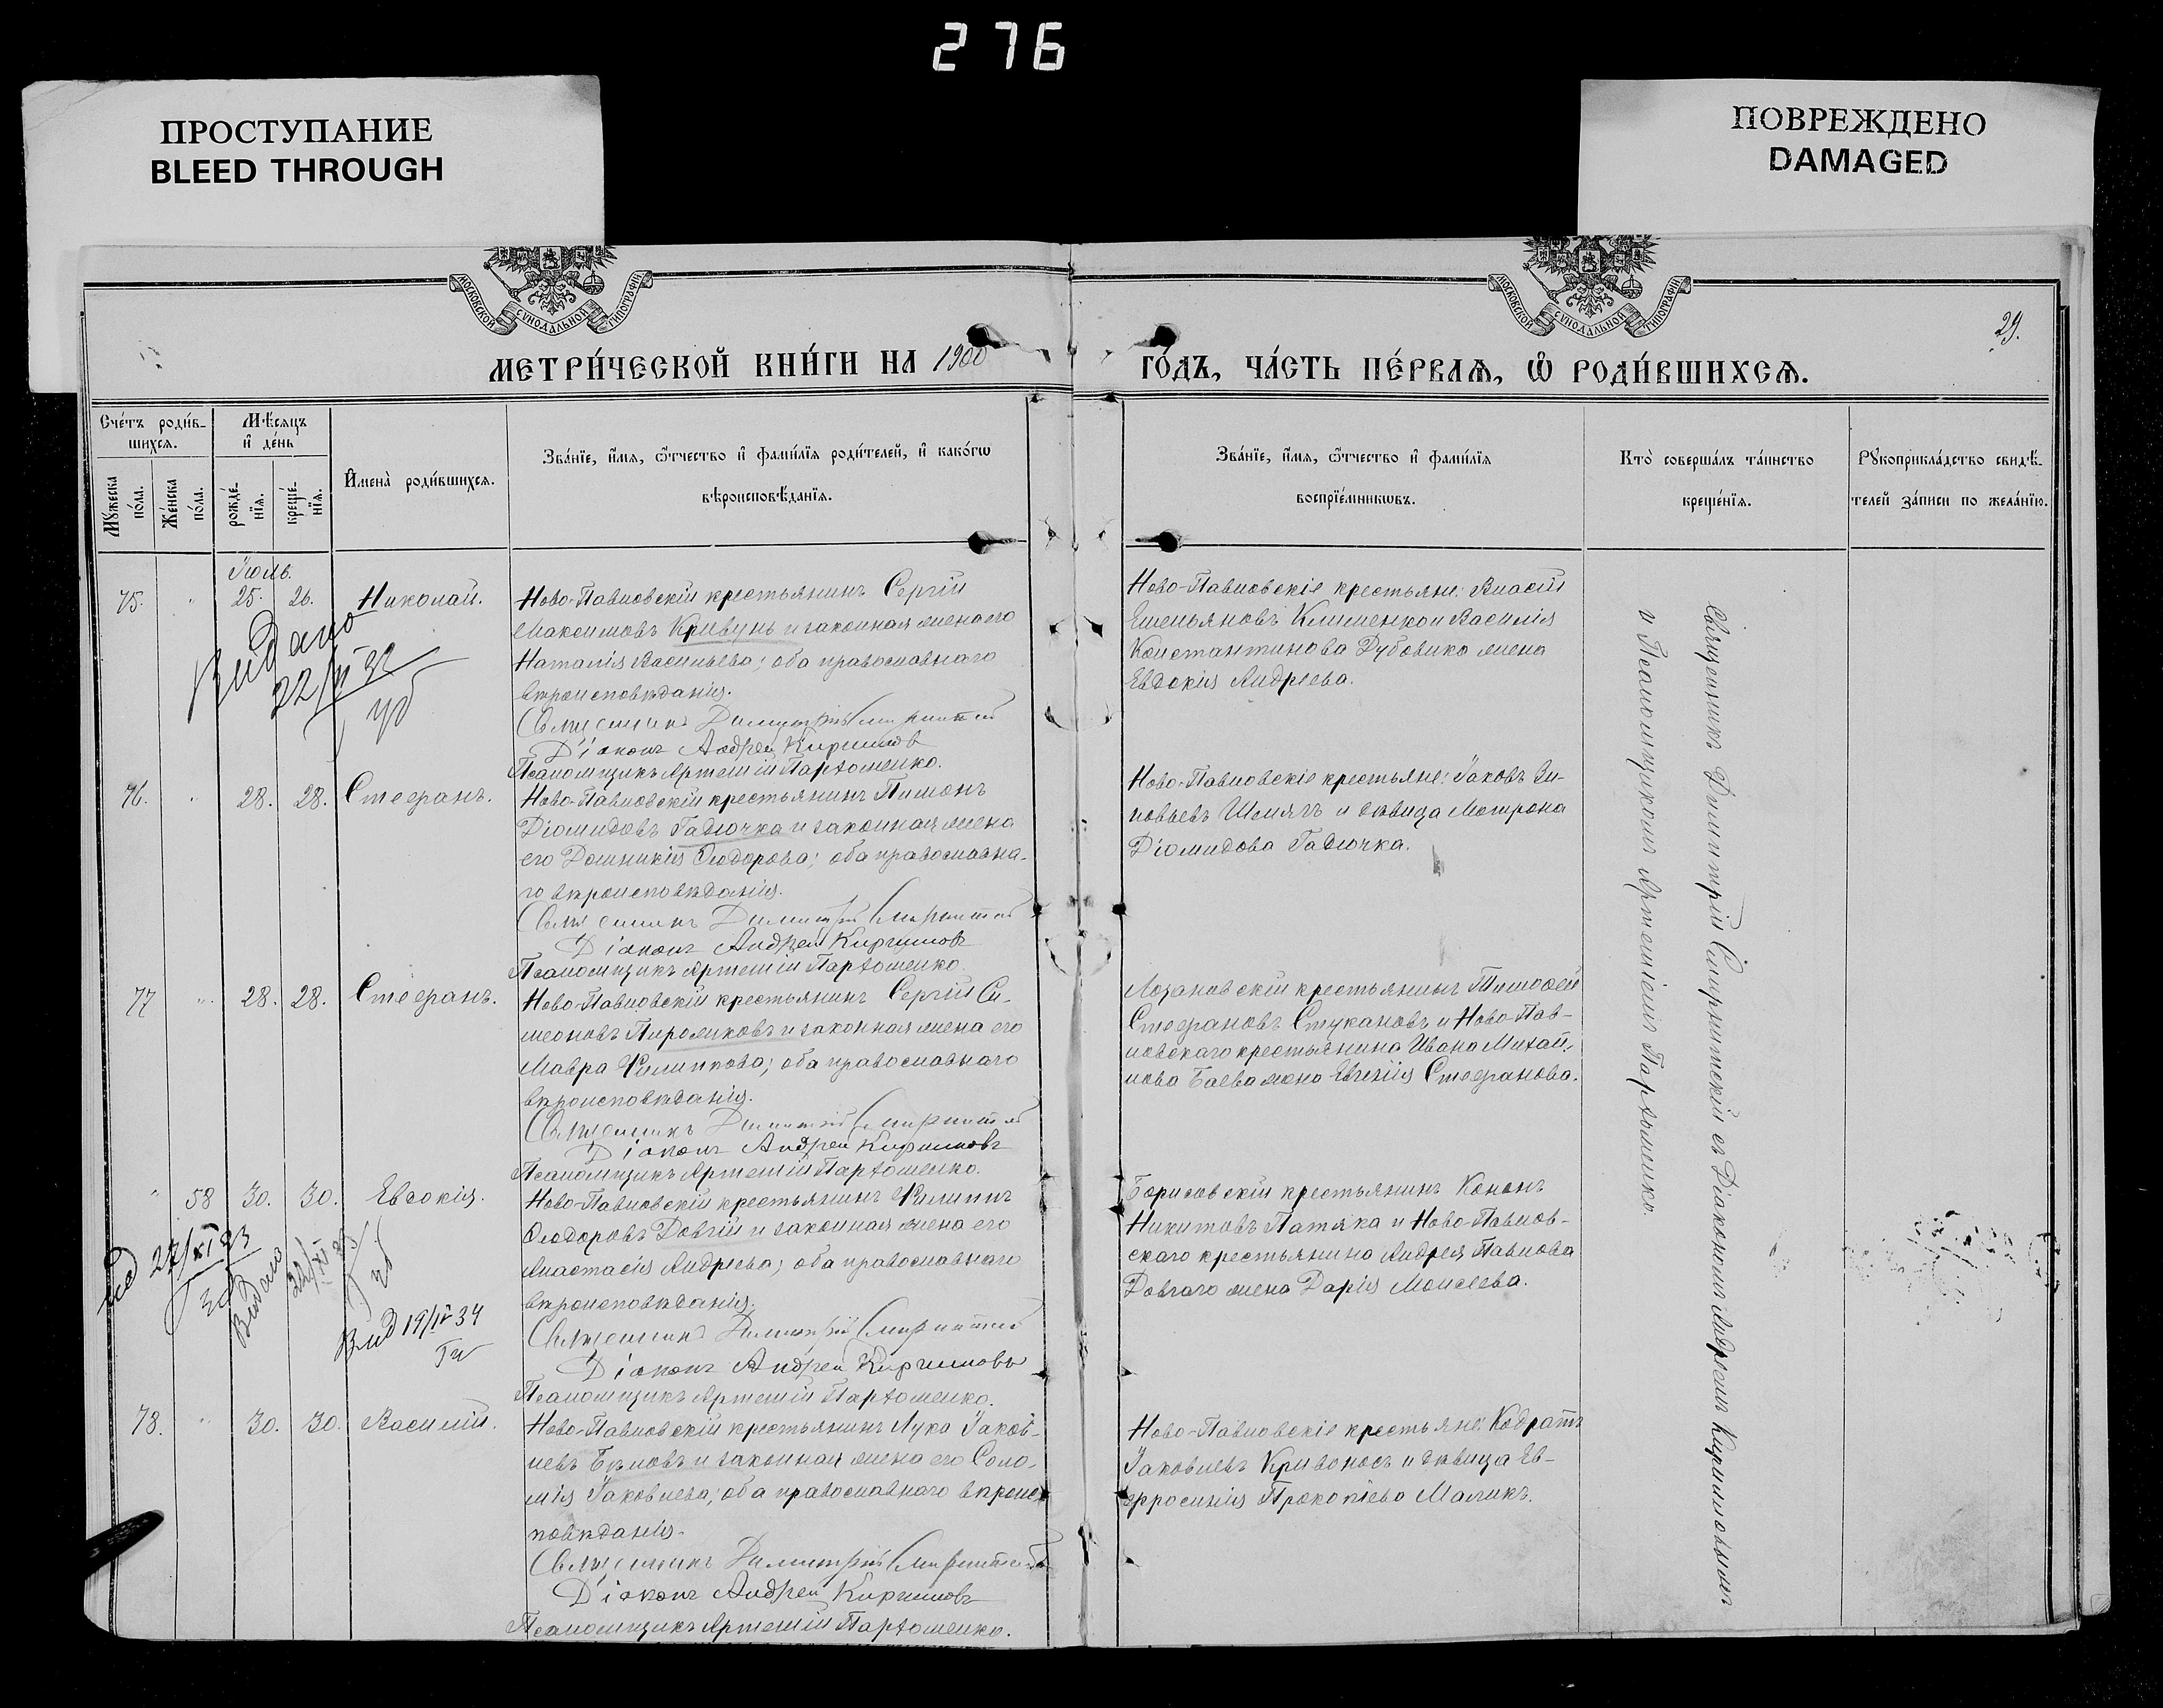 276
ПРОСТУПАНИЕ
BLEED THROUGH
ПОВРЕЖДЕНО
DAMAGED
МОСКОВСКОЙ СУНОДАЛЬНОЙ ТИПОГРАФІИ
МОСКОВСКОЙ СУНОДАЛЬНОЙ ТИПОГРАФІИ
29.
МЕТРИ́ЧЕСКОЙ КНИ́ГИ НА 1900
ГО́ДЪ, ЧА́СТЬ ПЕ́РВАѦ, Ѡ҆ РОДИ́ВШИХСѦ.
Сче́тъ роди́в-
шихсѧ.
Мꙋ́жеска по́ла.
Же́нска по́ла.
Мѣ́сѧцъ
и҆ де́нь
рожде́-
нїѧ.
креще́-
нїѧ.
И҆мена̀ роди́вшихсѧ.
Зва́нїе, и҆́мѧ, ѻ҆́тчество и҆ фами́лїѧ роди́телей, и҆ како́гѡ
вѣроисповѣ́данїѧ.
Зва́нїе, и҆́мѧ, ѻ҆́тчество и҆ фами́лїѧ
воспрїе́мникѡвъ.
Кто̀ соверша́лъ та́инство
креще́нїѧ.
Рꙋкоприкла́дство свидѣ́-
телей за́писи по жела́нїю.
Іюль.
75. " 25. 26. Николай.
Ново-Павловскій крестьянинъ Сергій
Максимовъ Кривунъ и законная жена его
Наталія Васильева; оба православнаго
вѣроисповѣданія.
Священникъ Димитрій Смирнитскій
Діаконъ Андрей Кириловъ
Псаломщикъ Артемій Пархоменко.
Ново-Павловскіе крестьяне: Власій
Емельяновъ Клименко и Василія
Константинова Дубовика жена
Евдокія Андреева.
Видано
22/VI 32
76. " 28. 28. Стефанъ.
Ново-Павловскій крестьянинъ Пимонъ
Діомидовъ Гадючка и законная жена
его Домникія Ѳеодорова; оба православна-
го вѣроисповѣданія.
Священникъ Димитрій Смирнитскій
Діаконъ Андрей Кириловъ
Псаломщикъ Артемій Пархоменко.
Ново-Павловскіе крестьяне: Іаковъ Зи-
новьевъ Шмлягъ и дѣвица Мотрона
Діомидова Гадючка.
77 " 28. 28. Стефанъ.
Ново-Павловскій крестьянинъ Сергій Си-
меоновъ Пирожковъ и законная жена его
Мавра Филиппова; оба православнаго
вѣроисповѣданія.
Священникъ Димитрій Смирнитскій
Діаконъ Андрей Кириловъ
Псаломщикъ Артемій Пархоменко.
Лозановскій крестьянинъ Тимофей
Стефановъ Стукановъ и Ново-Пав-
ловскаго крестьянина Ивана Михай-
лова Баева жена Евгенія Стефанова.
" 58 30. 30. Евдокія.
Ново-Павловскій крестьянинъ Филиппъ
Ѳеодоровъ Довгій и законная жена его
Анастасія Андреева; оба православнаго
вѣроисповѣданія.
Священникъ Димитрій Смирнитскій
Діаконъ Андрей Кириловъ
Псаломщикъ Артемій Пархоменко.
Борисовскій крестьянинъ Кононъ
Никитовъ Патяка и Ново-Павлов-
скаго крестьянина Андрея Павлова
Довгаго жена Дарія Моисеева.
Видано
Вид 19/IV 34
78. " 30. 30. Василій.
Ново-Павловскій крестьянинъ Лука Іаков-
левъ Бѣловъ и законная жена его Соло-
мія Іаковлева; оба православнаго вѣроис-
повѣданія.
Священникъ Димитрій Смирнитскій
Діаконъ Андрей Кириловъ
Псаломщикъ Артемій Пархоменко.
Ново-Павловскіе крестьяне: Кодратъ
Іаковлевъ Кривоносъ и дѣвица Ев-
фросинія Прокопіева Маликъ.
Священникъ Димитрій Смирнитскій съ Діакономъ Андреемъ Кириловымъ
и Псаломщикомъ Артеміемъ Пархоменко.